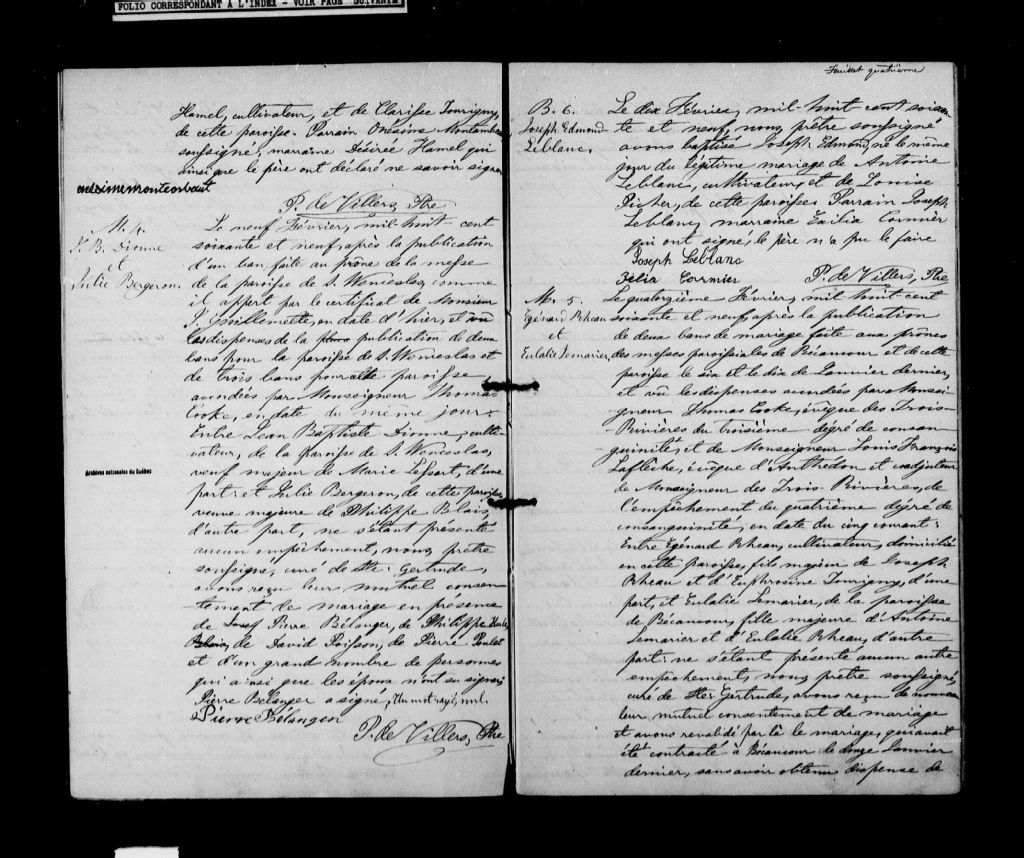 FOLIO CORRESPONDANT À L'INDEX - VOIR PAGE SUIVANTE
Hamel, cultivateur, et de Clarisse Tourigny,
de cette paroisse. Parrain Onésime Montambeau
soussigné, marraine Désirée Hamel qui
ainsi que le père ont déclaré ne savoir signer
P. de Villers, Ptre
M. 4.
J. B. Dionne
et
Julie Bergeron.
Le neuf Février, mil-huit cent
soixante et neuf, après la publication
d'un ban faite au prône de la messe
de la paroisse de S. Wenceslas, comme
il appert par le certificat de Monsieur
Guillemette, en date d'hier, et vu
les dispenses de la publication de deux
bans pour la paroisse de S. Wenceslas et
de trois bans pour cette paroisse
accordées par Monseigneur Thomas
Cooke, en date du même jour.
Entre Jean Baptiste Dionne, culti-
vateur, de la paroisse de S. Wenceslas,
veuf majeur de Marie Lessart, d'une
part: et Julie Bergeron, de cette paroisse,
veuve majeure de Philippe Blais,
d'autre part, ne s'étant présenté
aucun empêchement, nous, prêtre
soussigné, curé de Ste. Gertrude,
avons reçu leur mutuel consen-
tement de mariage en présence
de Josef Pierre Bélanger, de Philippe
de David Poisson, de Pierre
et d'un grand nombre de personnes
qui ainsi que les époux n'ont su signer;
Pierre Bélanger a signé, Un mot rayé, nul.
Pierre Bélanger
P. de Villers, Ptre
Archives nationales du Québec
Feuillet quatrième
B. 6.
Joseph Edmond
Leblanc.
Le dix Février, mil-huit cent soixan-
te et neuf, nous, prêtre soussigné
avons baptisé Joseph Edmond, né le même
jour du légitime mariage de Antoine
Leblanc, cultivateur, et de Louise
Picher, de cette paroisse. Parrain Joseph
Leblanc, marraine Exilia Cormier
qui ont signé, le père n'a pu le faire
Joseph Leblanc
Cormier
P. de Villers, Ptre
M. 5.
Egénard Rheau
et
Eulalie Lemarier,
Le quatorzième Février, mil huit cent
soixante et neuf, après la publication
de deux bans de mariage faite aux prônes
des messes paroissiales de Bécancour et de cette
paroisse le six et le dix de Janvier dernier,
et vu les dispenses accordées par Monsei-
gneur Thomas Cooke, évêque des Trois-
-Rivières du troisième dégré de consan-
guinité, et de Monseigneur Louis François
Laflèche, évêque d'Anthedon et coadjuteur
de Monseigneur des Trois-Rivières, de
l'empêchement du quatrième dégré de
consanguinité, en date du cinq courant:
Entre Egénard Rheau, cultivateur, domicilié
en cette paroisse, fils majeur de Joseph
Rheau et d'Euphrosine Tourigny, d'une
part, et Eulalie Lemarier, de la paroisse
de Bécancour, fille majeure d'Antoine
Lemarier et d'Eulalie Rheau, d'autre
part: ne s'étant présenté aucun autre
empêchement, nous, prêtre soussigné,
curé de Ste. Gertrude, avons reçu de nouveau
leur mutuel consentement de mariage
et avons revalidé par là le mariage, qui avait
été contracté à Bécancour le douze Janvier
dernier, sans avoir obtenu dispense de